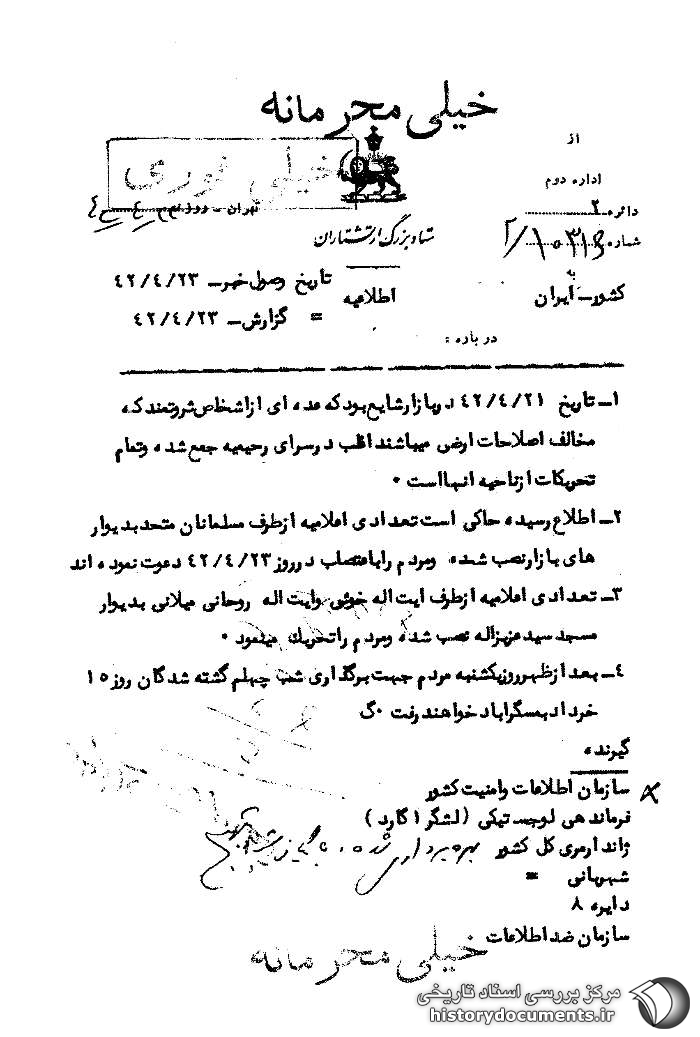 خیلی محرمانه
از
خیلی فوری
اداره دوم
دائره ۲
تهران ـ روز
شماره
ستاد بزرگ ارتشتاران
به
کشور ـ ایران
اطلاعیه
تاریخ وصول خبر ـ ۴۲/۴/۲۳
= گزارش ـ ۴۲/۴/۲۳
درباره :
۱ـ تاریخ ۴۲/۴/۲۱ در بازار شایع بود که عده ای از اشخاص ثروتمند که
مخالف اصلاحات ارضی میباشند اغلب در سرای رحیمیه جمع شده و تمام
تحریکات از ناحیه آنها است ۰
۲ـ اطلاع رسیده حاکی است تعدادی اعلامیه از طرف مسلمانان متحد بدیوار
های بازار نصب شده و مردم را باعتصاب در روز ۴۲/۴/۲۳ دعوت نموده اند
۳ـ تعدادی اعلامیه از طرف آیت اله خوئی و آیت اله روحانی میلانی بدیوار
مسجد سید عزیزاله نصب شده و مردم را تحریک مینمود ۰
۴ـ بعد از ظهر روز یکشنبه مردم جهت برگذاری شب چهلم کشته شدگان روز ۱۵
خرداد بمسگرآباد خواهند رفت ۰گ
گیرنده
سازمان اطلاعات و امنیت کشور
فرماندهی لوجستیکی (لشگر ۱ گارد)
ژاندارمری کل کشور
بهره برداری شده
شهربانی =
دایره ۸
سازمان ضد اطلاعات
خیلی محرمانه
مرکز بررسی اسناد تاریخی
historydocuments.ir